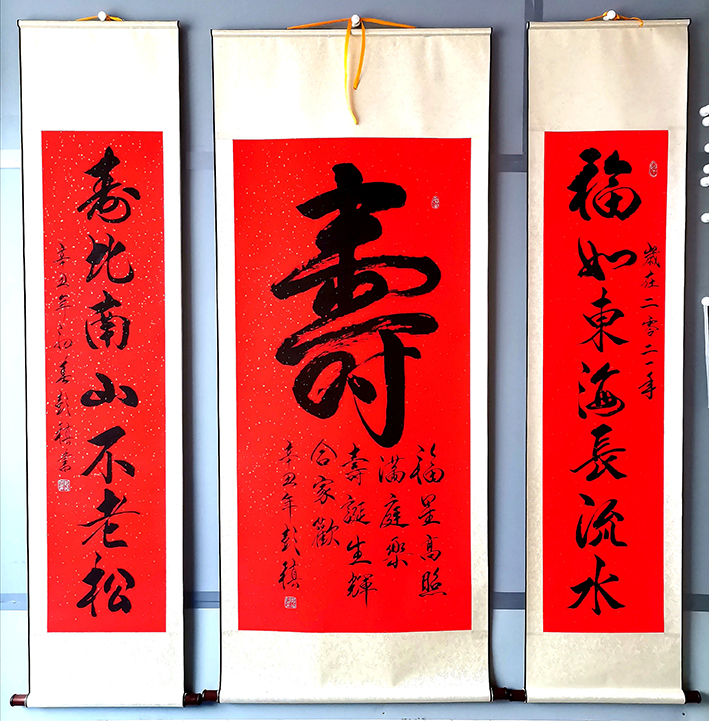 福如東海長流水
歲在二零二一年
壽
福星高照
滿庭樂
壽誕生輝
合家歡
辛丑年彭祺
寿比南山不老松
辛丑年初春彭祺書